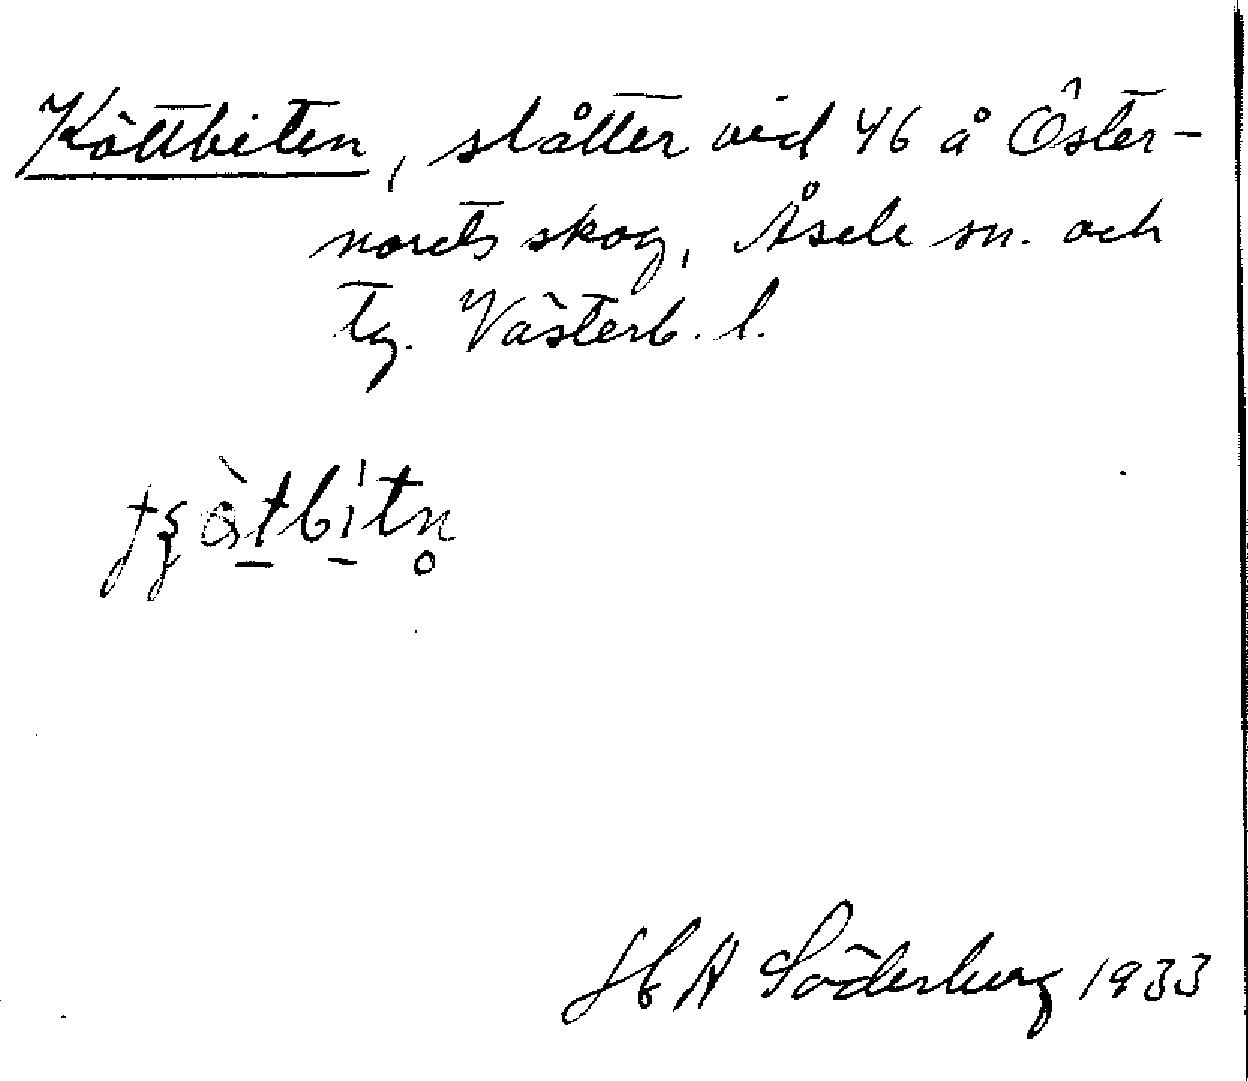 Köttbiten, slåtter vid 46 å Öster-
norets skog, Åsele sn. och
tg. Västerb. l.
H A Söderberg 1933